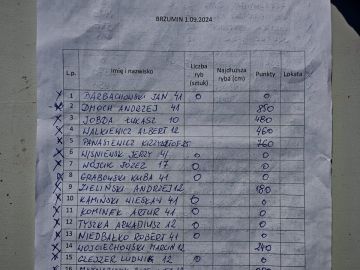 BRZUMIN 1.09.2024
L.p. Imię i nazwisko Liczba ryb (sztuk) Najdłuższa ryba (cm) Punkty Lokata
1 BARBACHOWSKI JAN 41 0 0
2 DMOCH ANDRZEJ 41 850
3 JOBDA ŁUKASZ 10 480
4 WALKIEWICZ ALBERT 12 460
5 PANASIEWICZ KRZYSZTOF 760
6 WIŚNIEWSK JERZY 41 0 0
7 WÓJCIK JÓZEF 17 0 0
8 GRABOWSKI KUBA 41 0 0
9 ZIELIŃSKI ANDRZEJ 12 180
10 KAMIŃSKI WIESŁAW 41 0 0
11 KOMINEK ARTUR 41 0 0
12 TYSZKA ARKADIUSZ 12 0 0
13 NIEDBAŁKO ROBERT 41 0 0
14 WOJCIECHOWSKI MARCIN 12 240
15 GLEJZER LUDWIK 12 0 0